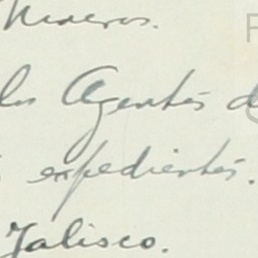 los Agentes d
expedientes.
Jalisco.